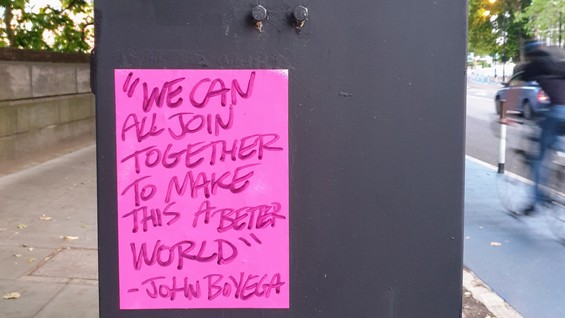 "WE CAN
ALL JOIN
TOGETHER
TO MAKE
THIS A BETER
WORLD"
- JOHN BOYEGA